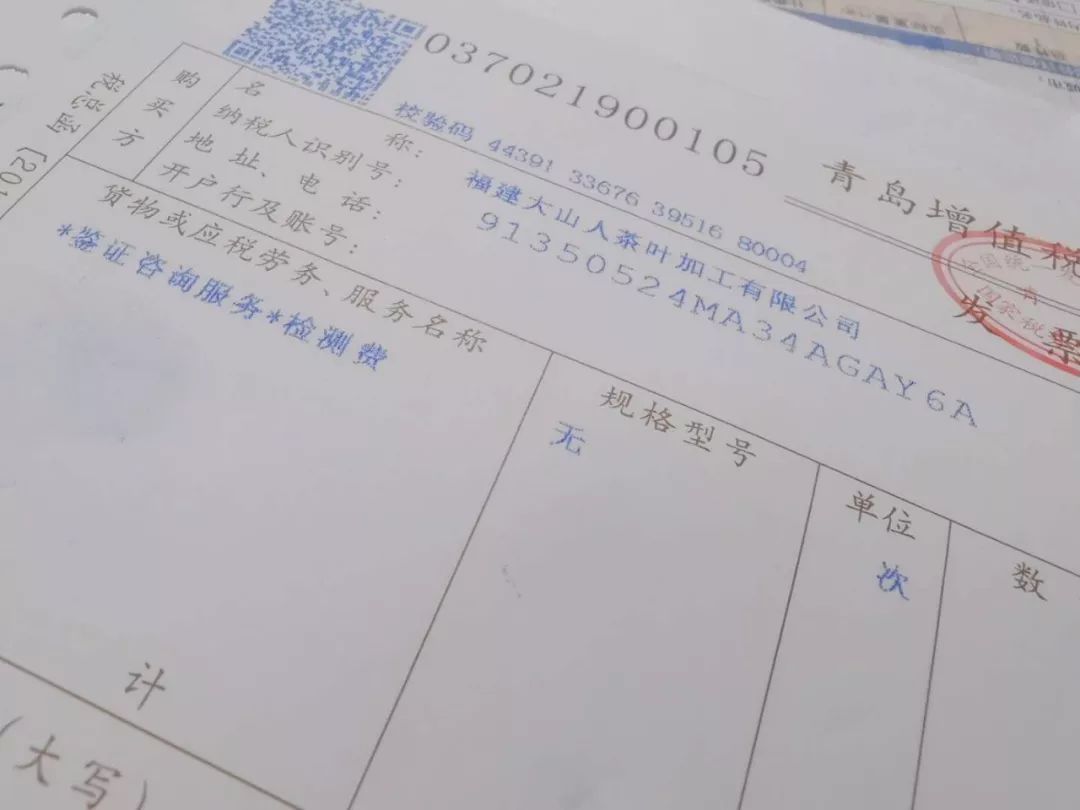 037021900105
青岛增值税
发票
全国统一
国家税
校验码 44391 33676 39516 80004
税总函〔201
购买方
名称：
福建大山人茶叶加工有限公司
纳税人识别号：
91350524MA34AGAY6A
地址、电话：
开户行及账号：
货物或应税劳务、服务名称
规格型号
单位
数
*鉴证咨询服务*检测费
无
次
计
（大写）